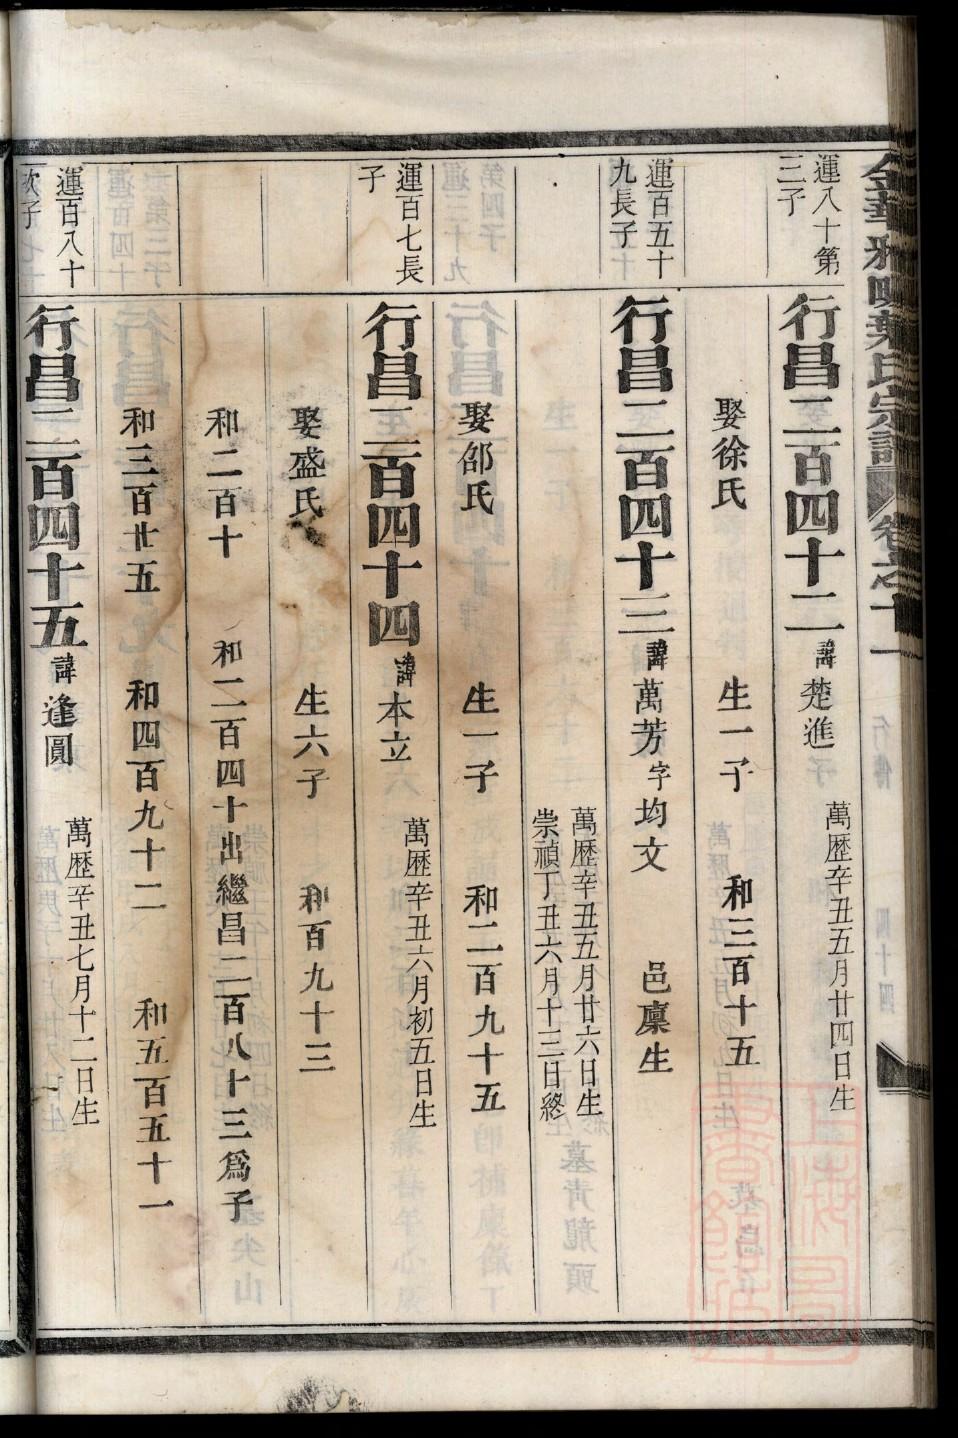 運八十第
三子
行昌二百四十二 諱楚進
萬歷辛丑五月廿四日生
娶徐氏 生一子 和三百十五
運百五十
九長子
行昌二百四十三 諱萬芳 字均文 邑廩生
萬歷辛丑五月廿六日生
崇禎丁丑六月十三日終
墓青龍頭
娶邵氏 生一子 和二百九十五
運百七長
子
行昌二百四十四 諱本立
萬歷辛丑六月初五日生
娶盛氏 生六子 和百九十三
和二百十 和二百四十出繼昌二百八十三爲子
和三百廿五 和四百九十二 和五百五十一
運百八十
次子
行昌二百四十五 諱逢圓
萬歷辛丑七月十二日生